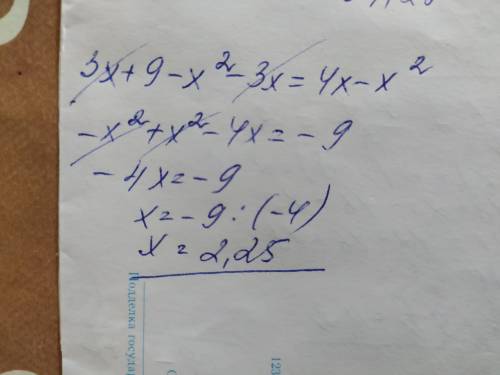 3x + 9 - x² - 3x = 4x - x²
- x² + x² - 4x = - 9
- 4x = - 9
x = - 9 : (-4)
x = 2,25
Подделка государ
123